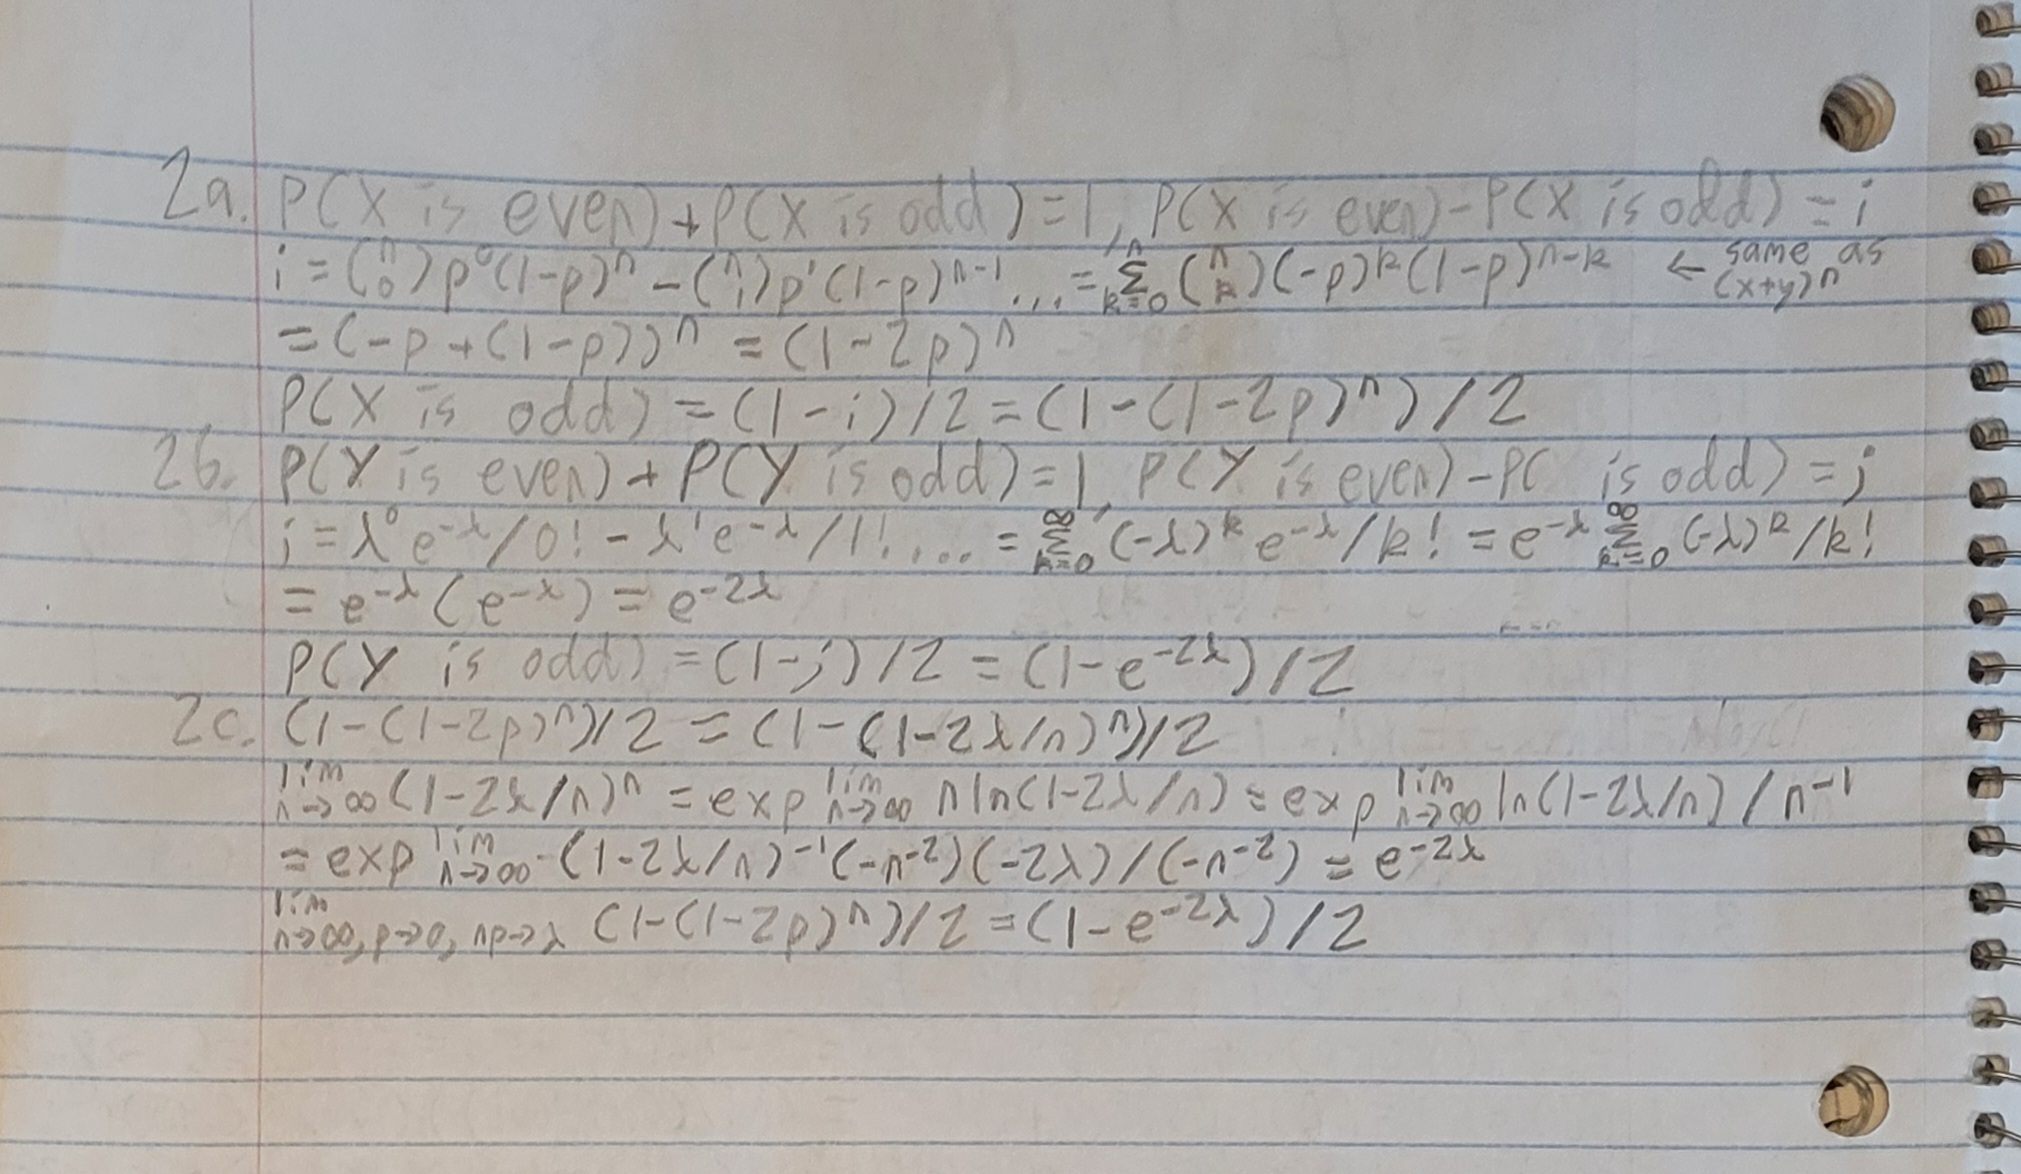 2a. P(X is even)+P(X is odd)=1, P(X is even)-P(X is odd)=i
i=(n 0)p⁰(1-p)ⁿ-(n 1)p¹(1-p)ⁿ⁻¹...=Σ_{k=0}^{n}(n k)(-p)^k(1-p)^{n-k} ← same as (x+y)ⁿ
=(-p+(1-p))ⁿ=(1-2p)ⁿ
P(X is odd)=(1-i)/2=(1-(1-2p)ⁿ)/2
2b. P(Y is even)+P(Y is odd)=1, P(Y is even)-P( is odd)=j
j=λ⁰e^{-λ}/0!-λ¹e^{-λ}/1!...=Σ_{k=0}^{∞}(-λ)^k e^{-λ}/k!=e^{-λ}Σ_{k=0}^{∞}(-λ)^k/k!
=e^{-λ}(e^{-λ})=e^{-2λ}
P(Y is odd)=(1-j)/2=(1-e^{-2λ})/2
2c. (1-(1-2p)ⁿ)/2=(1-(1-2λ/n)ⁿ)/2
lim_{n→∞}(1-2λ/n)ⁿ=exp lim_{n→∞} n ln(1-2λ/n)=exp lim_{n→∞} ln(1-2λ/n)/n⁻¹
=exp lim_{n→∞} (1-2λ/n)⁻¹(-n⁻²)(-2λ)/(-n⁻²)=e^{-2λ}
lim_{n→∞, p→0, np→λ} (1-(1-2p)ⁿ)/2=(1-e^{-2λ})/2